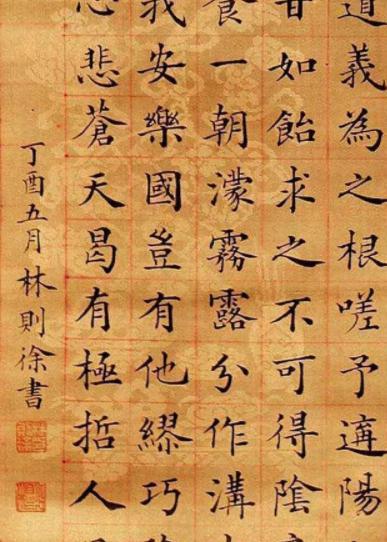 道義為之根嗟予遘陽
甘如飴求之不可得陰
食一朝濛霧露分作溝
我安樂國豈有他繆巧
心悲蒼天曷有極哲人
丁酉五月林則徐書